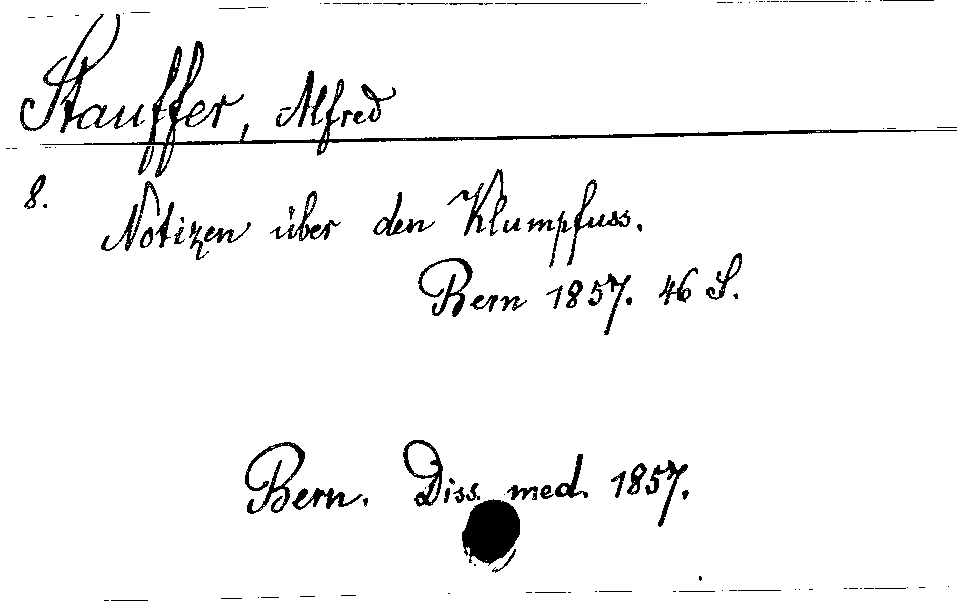 Stauffer, Alfred
8.
Notizen über den Klumpfuss.
Bern 1857. 46 S.
Bern. Diss. med. 1857.